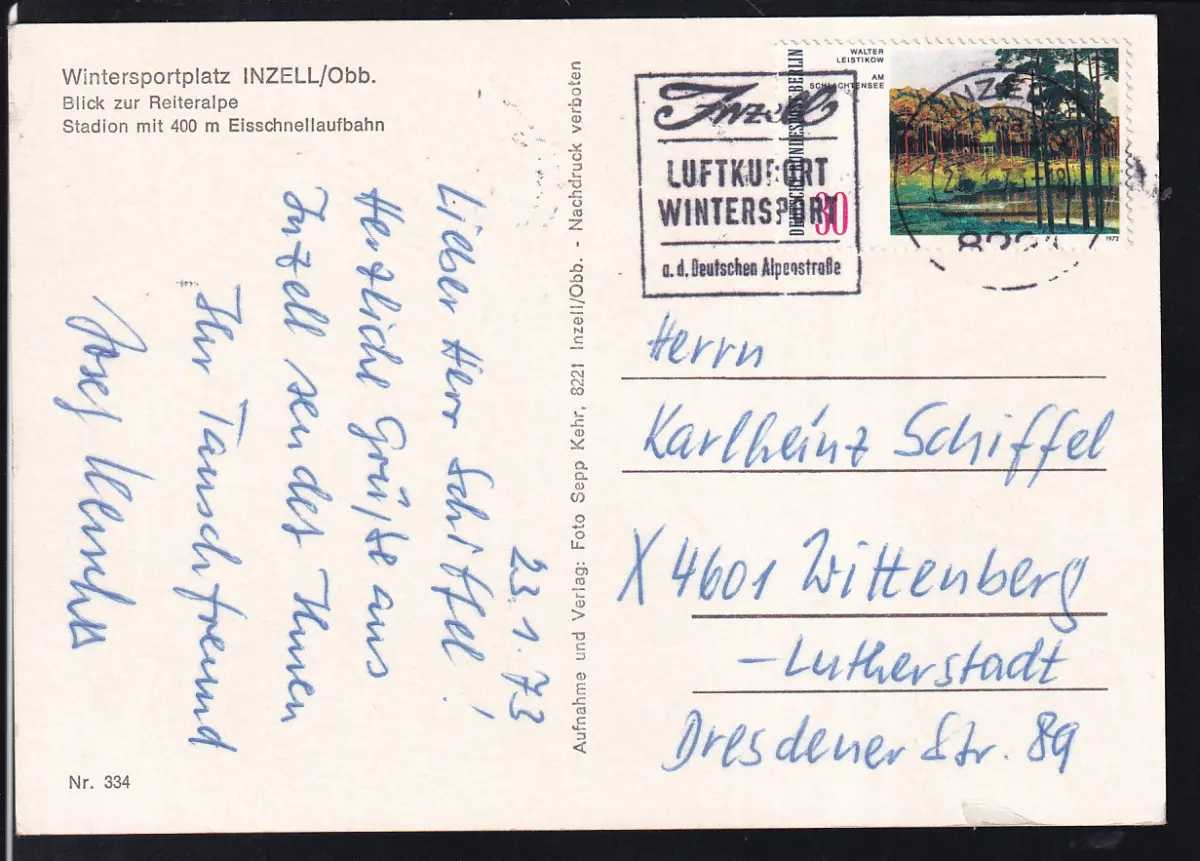 Wintersportplatz INZELL/Obb.
Blick zur Reiteralpe
Stadion mit 400 m Eisschnellaufbahn
23.1.73
Lieber Herr Schiffel!
Herzliche Grüße aus
Inzell sendet Ihnen
Ihr Tauschfreund
Josef
Nr. 334
Aufnahme und Verlag: Foto Sepp Kehr, 8221 Inzell/Obb. - Nachdruck verboten
Inzell
LUFTKURORT
WINTERSPORT
a.d. Deutschen Alpenstraße
DEUTSCHE BUNDESPOST BERLIN
WALTER
LEISTIKOW
AM
SCHLACHTENSEE
30
1972
INZELL
8221
Herrn
Karlheinz Schiffel
X 4601 Wittenberg
-Lutherstadt
Dresdener Str. 89